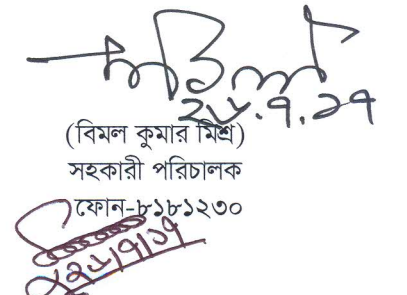 ২৮.৭.১৭
(বিমল কুমার মিশ্র)
সহকারী পরিচালক
ফোন-৮১৮১২৩০
২৮/৭/১৭